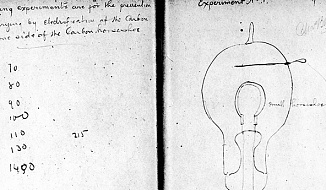 ing experiments are for the prevention
rying by electrification of the Carbon
one side of the Carbon horseshoe
70
80
90
100
110 215
130
1400
Experiment No 1.
small horseshoe